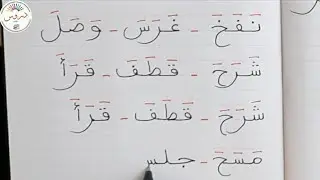 دروس
نَفَخَ - غَرَسَ - وَصَلَ
شَرَحَ - قَطَفَ - قَرَأَ
شَرَحَ - قَطَفَ - قَرَأَ
مَسَحَ - جلس